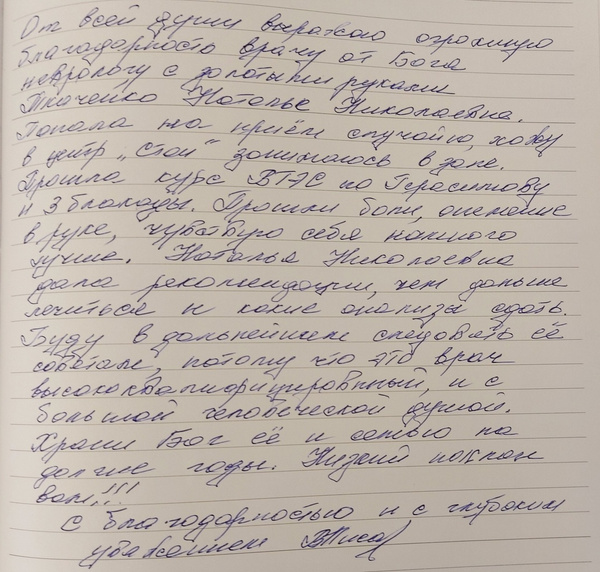 От всей души выражаю огромную
благодарность врачу от Бога
неврологу с золотыми руками
Ткаченко Наталье Николаевне.
Попала на приём случайно, хожу
в центр „Стои" занимаюсь в зале.
Прошла курс ВТЭС по Герасимову
и 3 блокады. Прошли боли, онемение
в руке, чувствую себя намного
лучше. Наталья Николаевна
дала рекомендации, чем дальше
лечиться и какие анализы сдать.
Буду в дальнейшем следовать её
советам, потому что это врач
высококвалифицированный, и с
большой человеческой душой.
Храни Бог её и семью на
долгие годы. Низкий поклон
вам!!!
С благодарностью и с глубоким
уважением